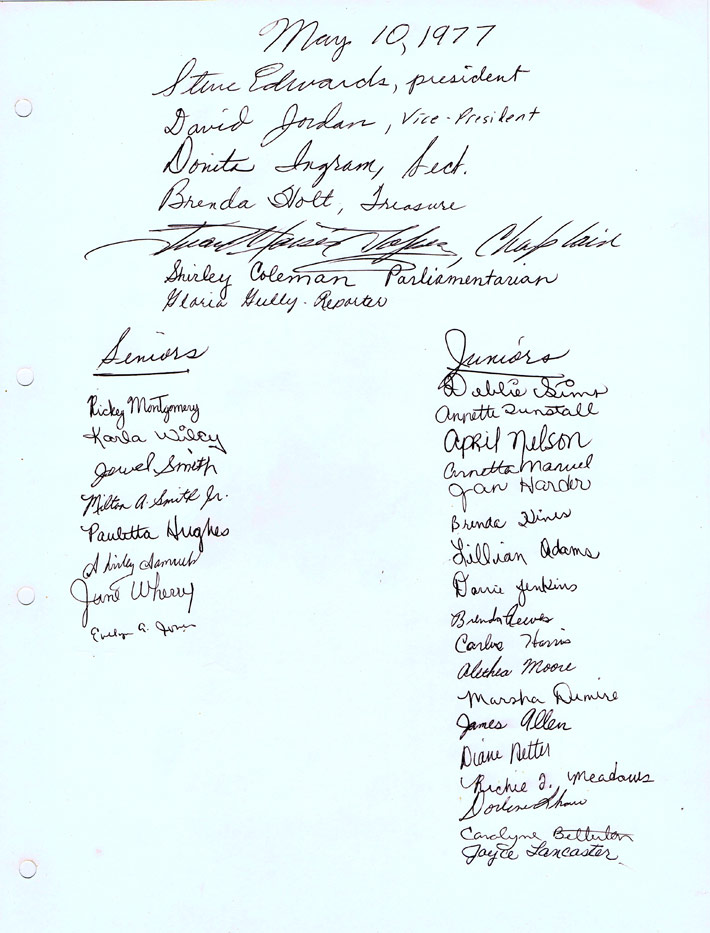 May 10, 1977
Steve Edwards, president
David Jordan, Vice-President
Donita Ingram, Sect.
Brenda Holt, Treasure
Chaplain
Shirley Coleman Parliamentarian
Gloria Gully - Reporter
Seniors
Rickey Montgomery
Karla Wiley
Jewel Smith
Milton A. Smith Jr.
Pauletta Hughes
Shirley Samuels
Jane Wherry
Evelyn A. Jones
Juniors
Debbie Sims
Annette Tunstall
April Nelson
Arnetta Manuel
Jan Harder
Brenda Hines
Lillian Adams
Jenkins
Brenda Reeves
Harris
Alethea Moore
Marsha
James Allen
Diane Netter
Richie J. Meadows
Darlene Shaw
Carolyne
Joyce Lancaster